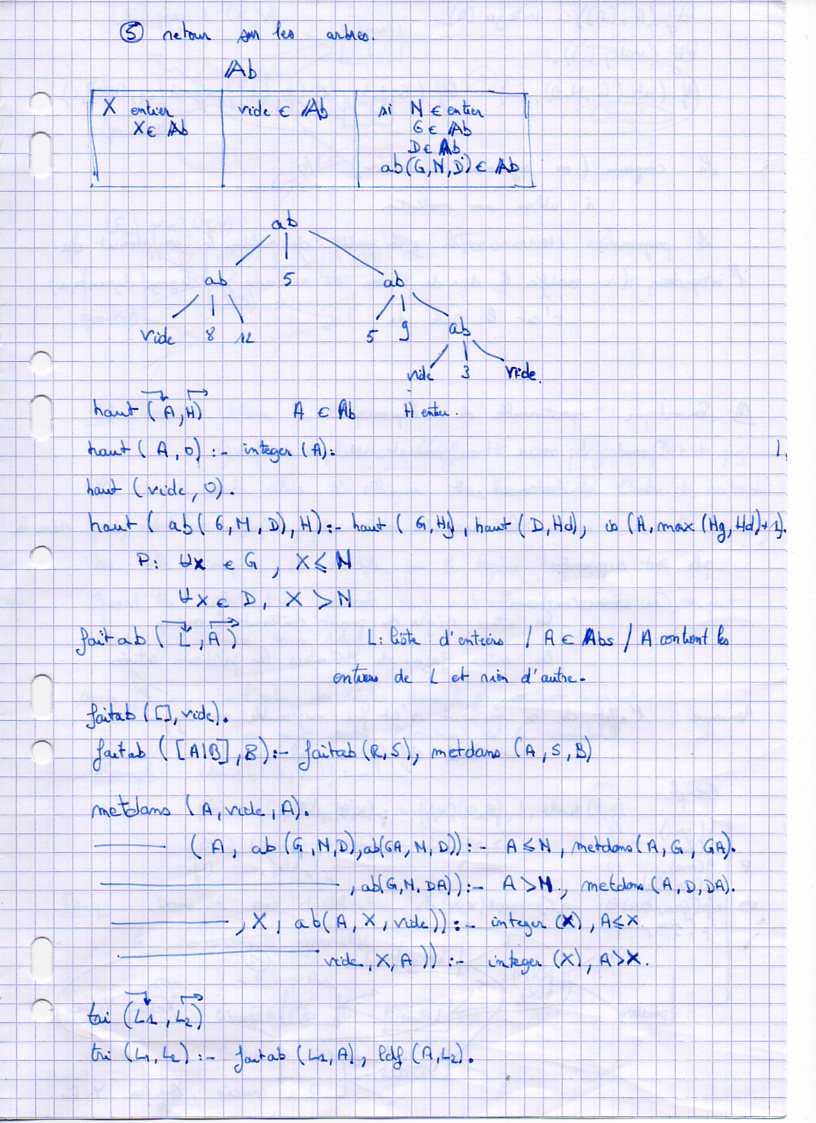 ⑤ retour sur les arbres.
Ab
X entier
X ∈ Ab
vide ∈ Ab
si N ∈ entier
G ∈ Ab
D ∈ Ab
ab(G,N,D) ∈ Ab
ab
ab 5 ab
vide 8 12 5 9 ab
vide 3 vide.
haut (A,H) A ∈ Ab H entier.
haut (A,0) :- integer (A). 1,
haut (vide, 0).
haut ( ab( G, M, D), H) :- haut ( G, Hg), haut ( D, Hd), is (H, max (Hg, Hd)+1).
P: ∀x ∈ G , X ⩽ N
∀x ∈ D, X > N
faitab (L,A) L: liste d'entiers / A ∈ Abs / A contient les
entiers de L et rien d'autre.
faitab ([], vide).
faitab ([A|B], B) :- faitab (R,S), metdans (A,S,B)
metdans (A, vide, A).
——— (A, ab (G,N,D), ab(GA, N, D)) :- A ⩽ N, metdans (A, G, GA).
——— , ab(G,N,DA)) :- A > N, metdans (A, D, DA).
——— , X, ab(A, X, vide)) :- integer (X), A ⩽ X.
——— vide, X, A)) :- integer (X), A > X.
tri (L1, L2)
tri (L1, L2) :- faitab (L1, A), ldf (A, L2).